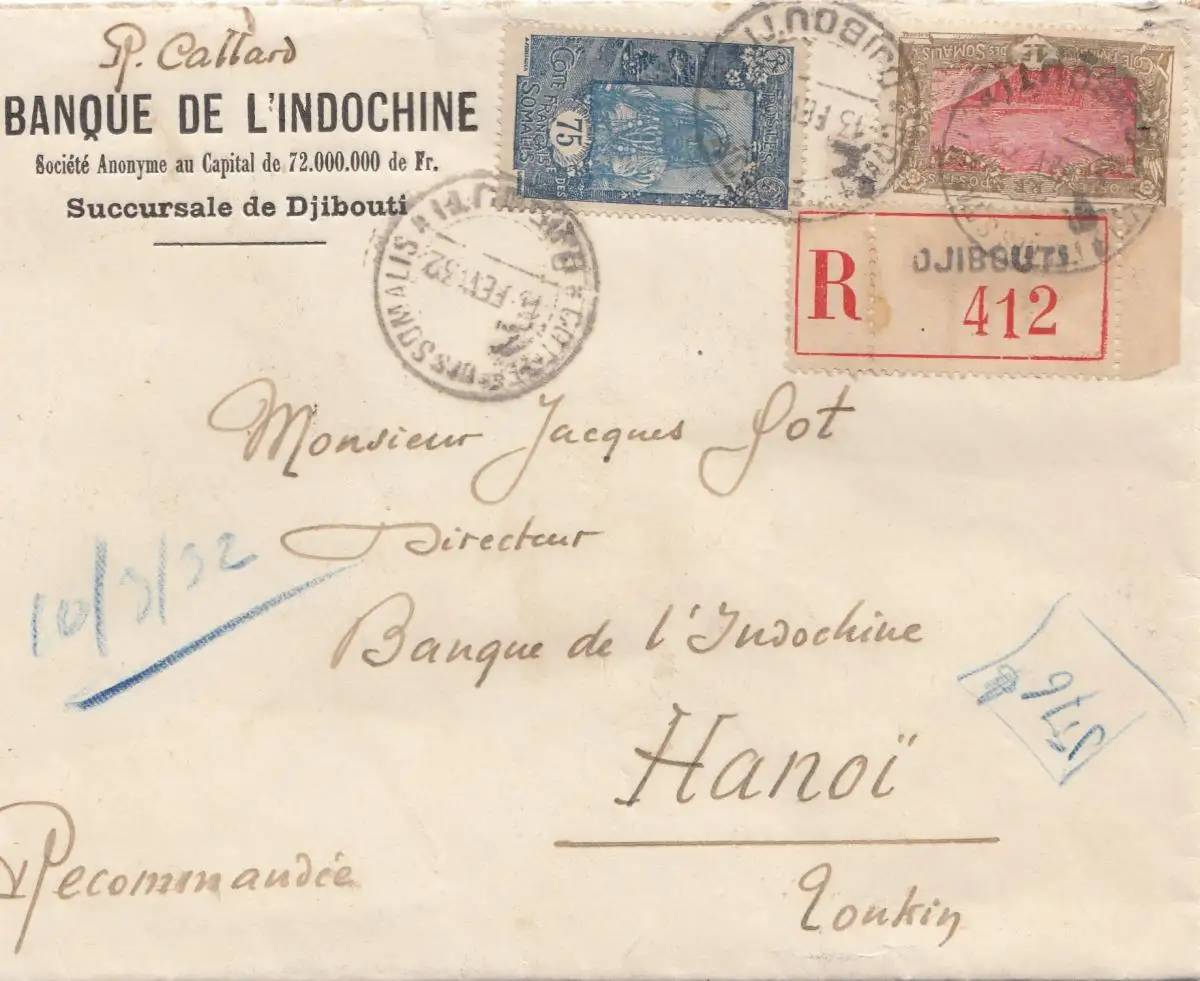 P. Callard
BANQUE DE L'INDOCHINE
Société Anonyme au Capital de 72.000.000 de Fr.
Succursale de Djibouti
CÔTE FRANÇAISE DES SOMALIS
75
POSTES
CÔTE FRANÇAISE DES SOMALIS
1F
POSTES
DJIBOUTI
13 FEV
DJIBOUTI
SOMALIS
13 FEV 32
R
DJIBOUTI
412
Monsieur Jacques Got
Directeur
Banque de l'Indochine
10/3/32
Hanoï
Recommandée
Tonkin